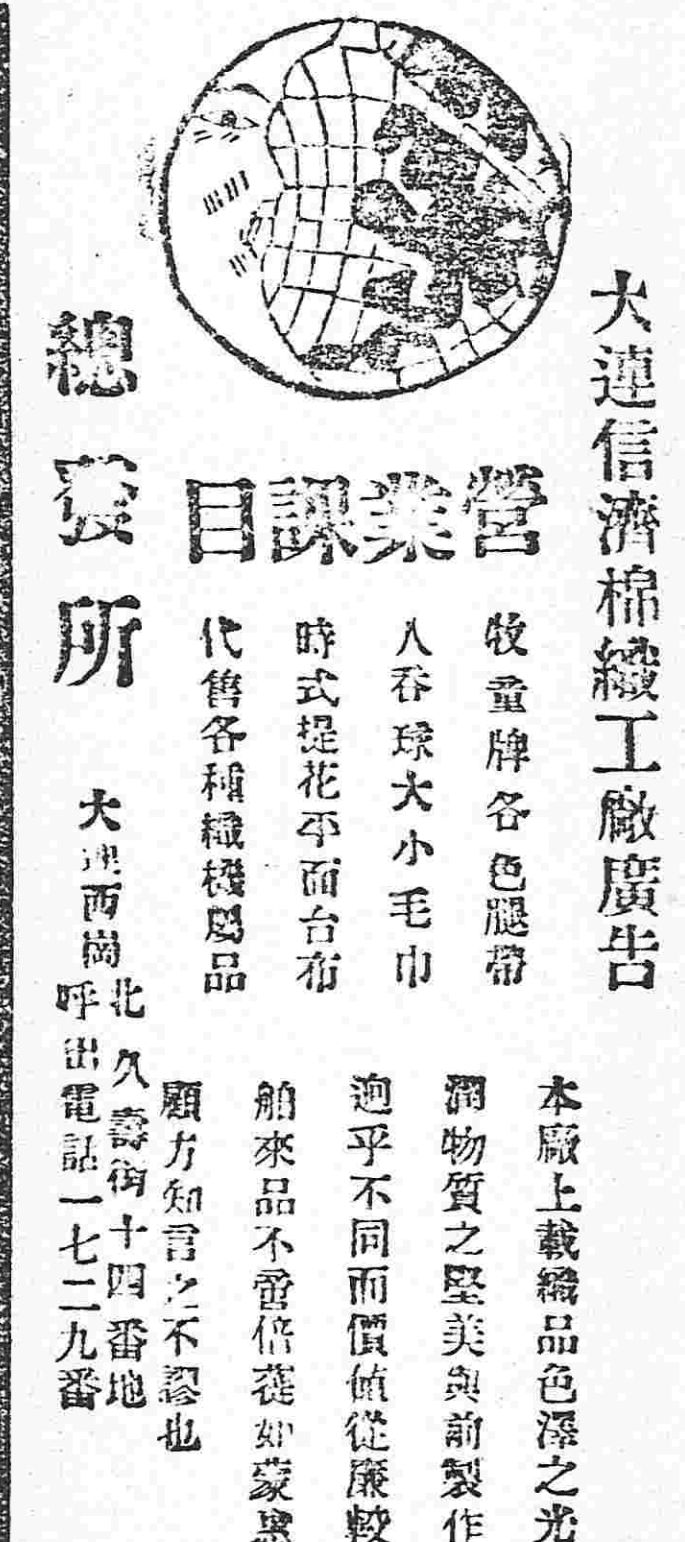 大連信濟棉織工廠廣告
營業課目
牧童牌各色腿帶
人吞球大小毛巾
時式提花平面台布
代售各種織機屬品
本廠上載織品色澤之光
潤物質之堅美與前製作
逈乎不同而價值從廉較
舶來品不啻倍蓰如蒙惠
顧方知言之不謬也
總發所
大連西崗
北久壽街十四番地
呼出電話一七二九番